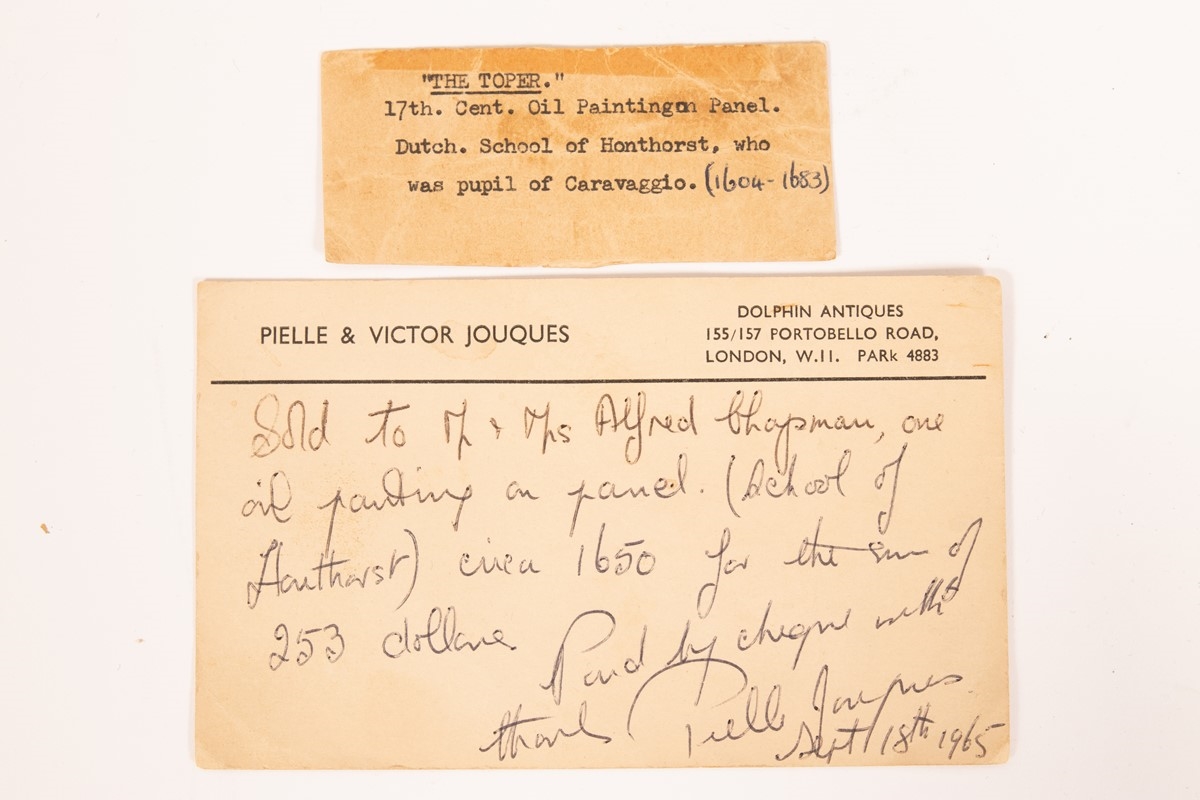 "THE TOPER."
17th. Cent. Oil Paintingon Panel.
Dutch. School of Honthorst, who
was pupil of Caravaggio. (1604-1683)
PIELLE & VICTOR JOUQUES
DOLPHIN ANTIQUES
155/157 PORTOBELLO ROAD,
LONDON, W.11. PARk 4883
Sold to Mr & Mrs Alfred Chapman, one
oil painting on panel. (School of
Honthorst) circa 1650 for the sum of
253 dollars
Paid by cheque with
thanks Pielle Jouques
Sept 18th 1965